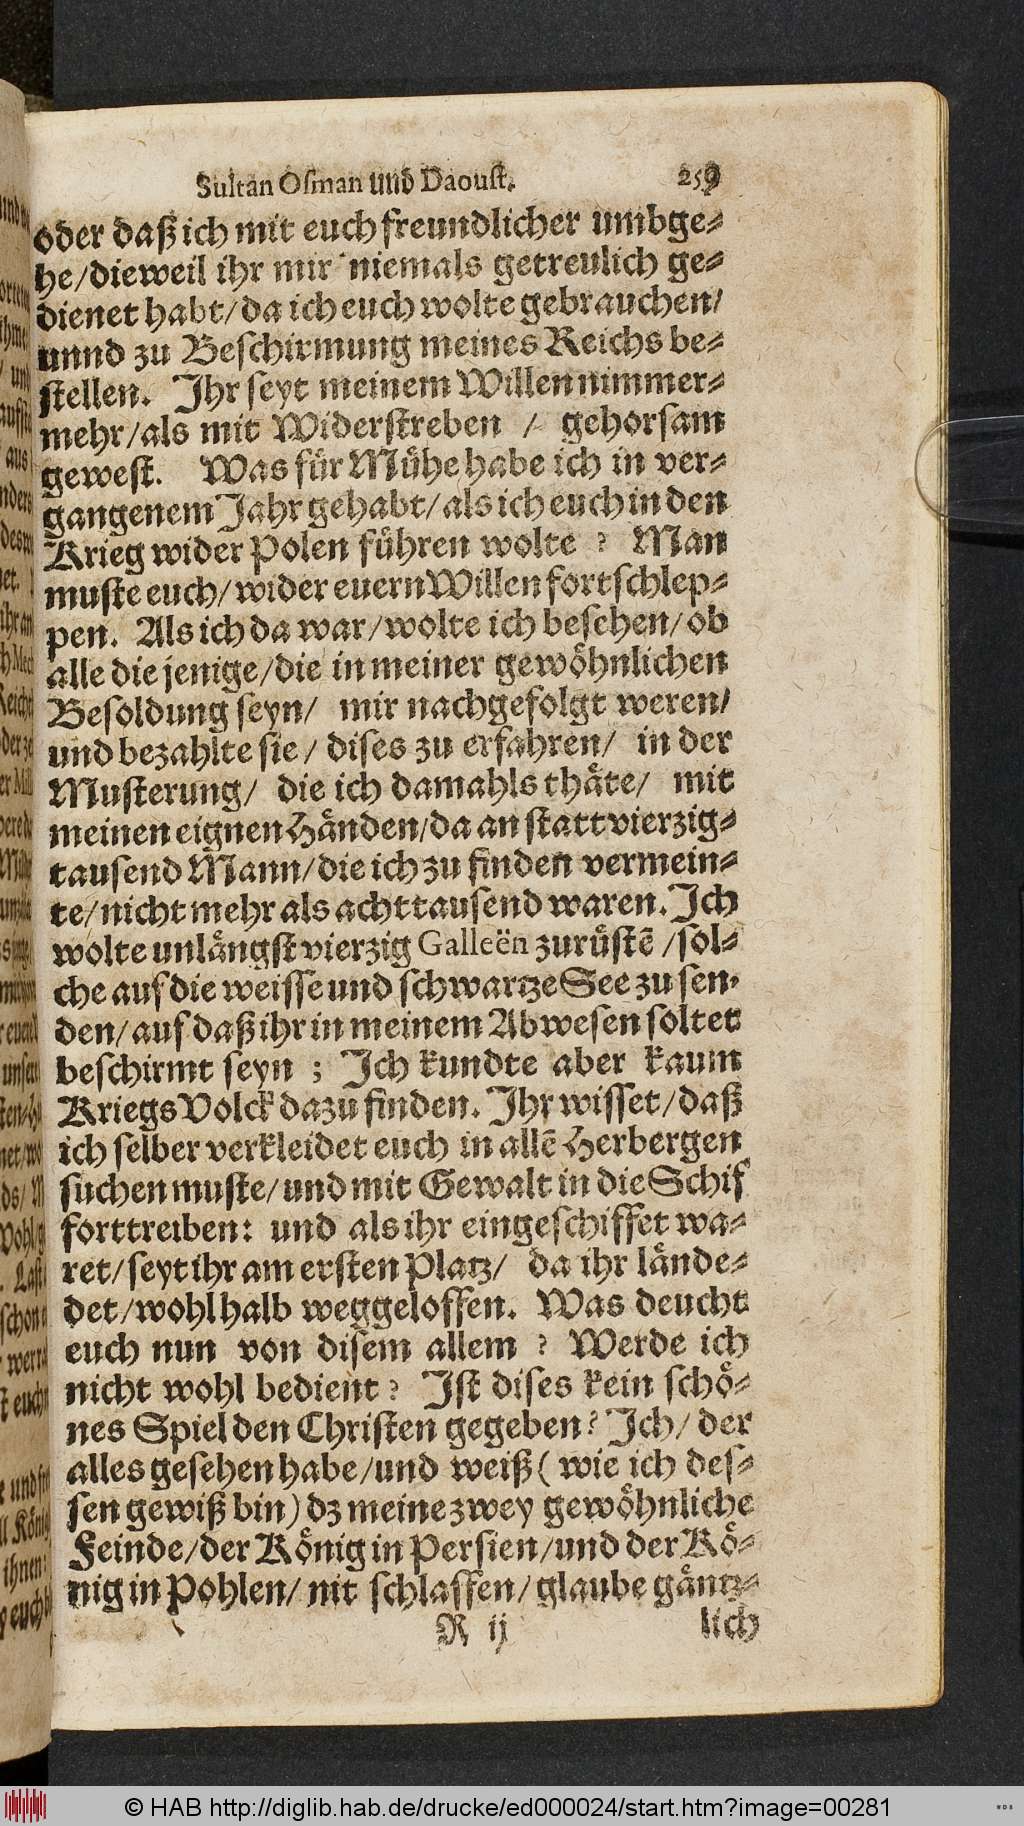 Sultan Osman und Daoust. 259
oder daß ich mit euch freundlicher umbge-
he/dieweil ihr mir niemals getreulich ge-
dienet habt/da ich euch wolte gebrauchen/
unnd zu Beschirmung meines Reichs be-
stellen. Ihr seyt meinem Willen nimmer-
mehr/als mit Widerstreben / gehorsam
gewest. Was für Mühe habe ich in ver-
gangenem Jahr gehabt/als ich euch in den
Krieg wider Polen führen wolte ? Man
muste euch/wider euern Willen fortschlep-
pen. Als ich da war/wolte ich besehen/ob
alle die jenige/die in meiner gewöhnlichen
Besoldung seyn/ mir nachgefolgt weren/
und bezahlte sie/ dises zu erfahren/ in der
Musterung/ die ich damahls thäte/ mit
meinen eignen Händen/da an statt vierzig-
tausend Mann/die ich zu finden vermein-
te/nicht mehr als acht tausend waren. Ich
wolte unlängst vierzig Galleën zurüstē /sol-
che auf die weisse und schwartze See zu sen-
den/auf daß ihr in meinem Abwesen soltet
beschirmt seyn ; Ich kundte aber kaum
Kriegs Volck dazu finden. Ihr wisset/daß
ich selber verkleidet euch in allē Herbergen
suchen muste/und mit Gewalt in die Schif
forttreiben: und als ihr eingeschiffet wa-
ret/seyt ihr am ersten Platz/ da ihr lände-
det/wohl halb weggeloffen. Was deucht
euch nun von disem allem ? Werde ich
nicht wohl bedient ? Ist dises kein schö-
nes Spiel den Christen gegeben? Ich/ der
alles gesehen habe/und weiß ( wie ich des-
sen gewiß bin) dz meine zwey gewöhnliche
Feinde/der König in Persien/und der Kö-
nig in Pohlen/ nit schlaffen/glaube gäntz-
R ij lich
© HAB http://diglib.hab.de/drucke/ed000024/start.htm?image=00281